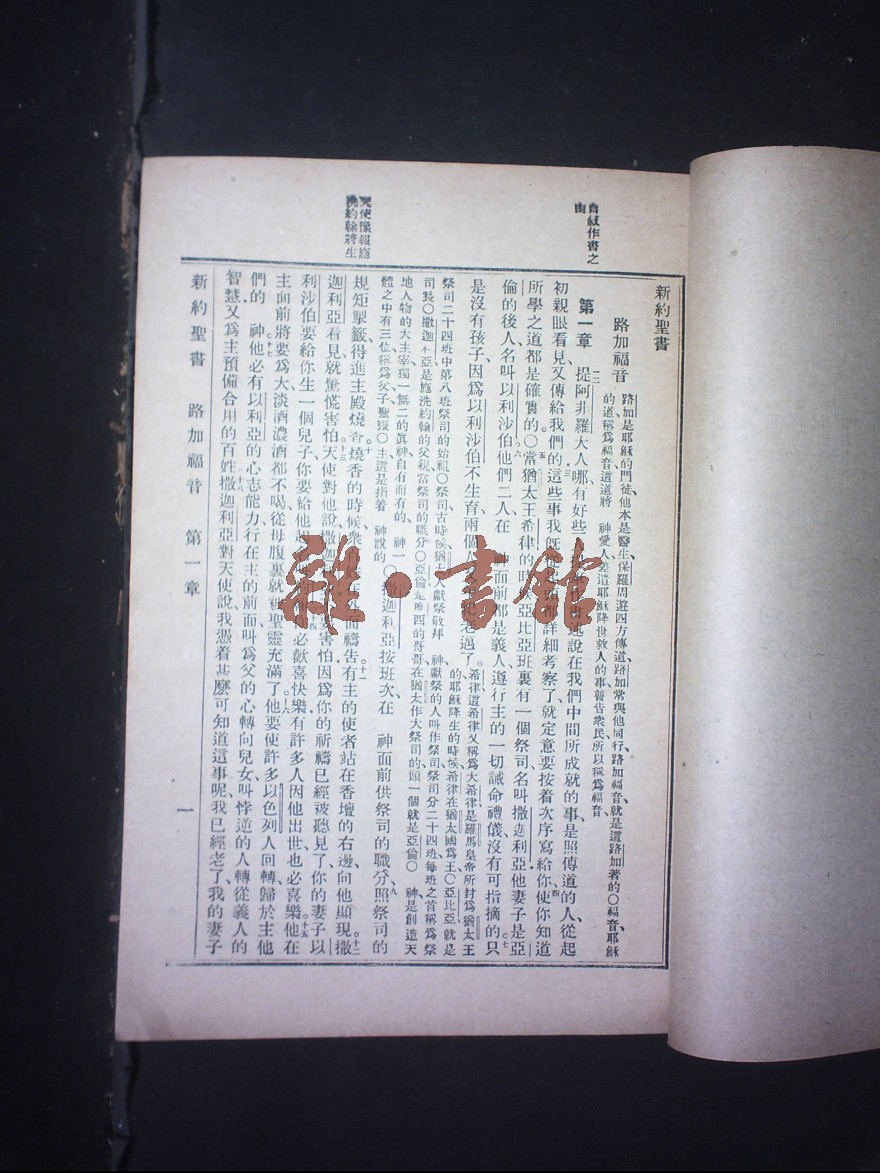 自敍作書之
由
天使豫報施
洗約翰將生
新約聖書
路加福音
路加是耶穌的門徒他本是醫生、保羅周遊四方傳道、路加常與他同行、路加福音、就是這路加著的〇福音、耶穌
的道稱爲福音這道將 神愛人、差遣耶穌降世救人的事、普告衆民所以稱爲福音、
第一章 提阿非羅大人、哪有好些 說在我們中間所成就的事、是照傳道的人、從起
初親眼看見、又傳給我們的、這些事我旣 都詳細考察了、就定意要按着次序寫給你、使你知道
所學之道都是確實的、〇當猶太王希律的 亞比亞班裏有一個祭司、名叫撒迦利亞、他妻子是亞
倫的後人、名叫以利沙伯、他們二人、在 神面前都是義人、遵行主的一切誡命禮儀、沒有可指摘的、只
是沒有孩子、因爲以利沙伯不生育、兩個人 老邁了。
希律這希律又稱爲大希律、是羅馬皇帝所封爲猶太王
的耶穌降生的時候、希律在猶太國爲王〇亞比亞、就是
祭司二十四班中第八班祭司的始祖〇祭司古時候猶太人獻祭敬拜 神獻祭的人叫作祭司、祭司分二十四班、每班之首稱爲祭
司長〇撒迦利亞是施洗約翰的父親當祭司的職分〇亞倫是摩西的哥哥、在猶太作大祭司的、頭一個就是亞倫〇 神是創造天
地人物的大主宰、獨一無二的眞神、自有而有的、 神一
體之中有三位、稱爲父子聖靈〇主這是指着 神說的〇
撒迦利亞按班次、在 神面前供祭司的職分、照祭司的
規矩掣籤、得進主殿燒香、燒香的時候、衆 外面禱吿、有主的使者站在香壇的右邊、向他顯現、撒
迦利亞看見、就驚慌害怕、天使對他說、撒迦 要害怕、因爲你的祈禱已經被聽見了、你的妻子以
利沙伯要給你生一個兒子、你要給他 你必歡喜快樂、有許多人因他出世、也必喜樂、他在
主面前將要爲大、淡酒濃酒都不喝、從母腹裏就被聖靈充滿了、他要使許多以色列人回轉、歸於主他
們的 神他必有以利亞的心志能力、行在主的前面、叫爲父的心轉向兒女、叫悖逆的人轉從義人的
智慧、又爲主預備合用的百姓、撒迦利亞對天使說、我憑着甚麽可知道這事呢、我已經老了、我的妻子
新約聖書 路加福音 第一章 一
雜·書館